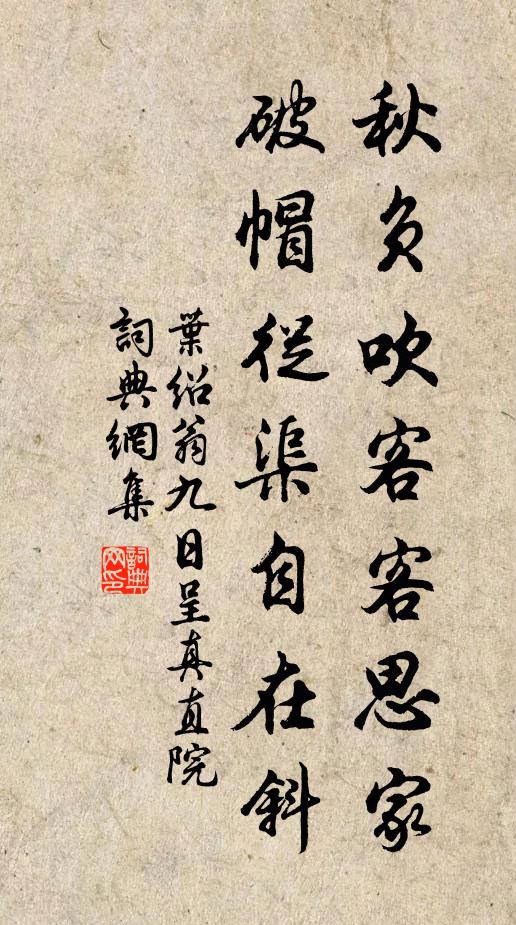 秋風吹客客思家
破帽從渠自在斜
葉紹翁九日呈真直院
詞典網集
詞典网印